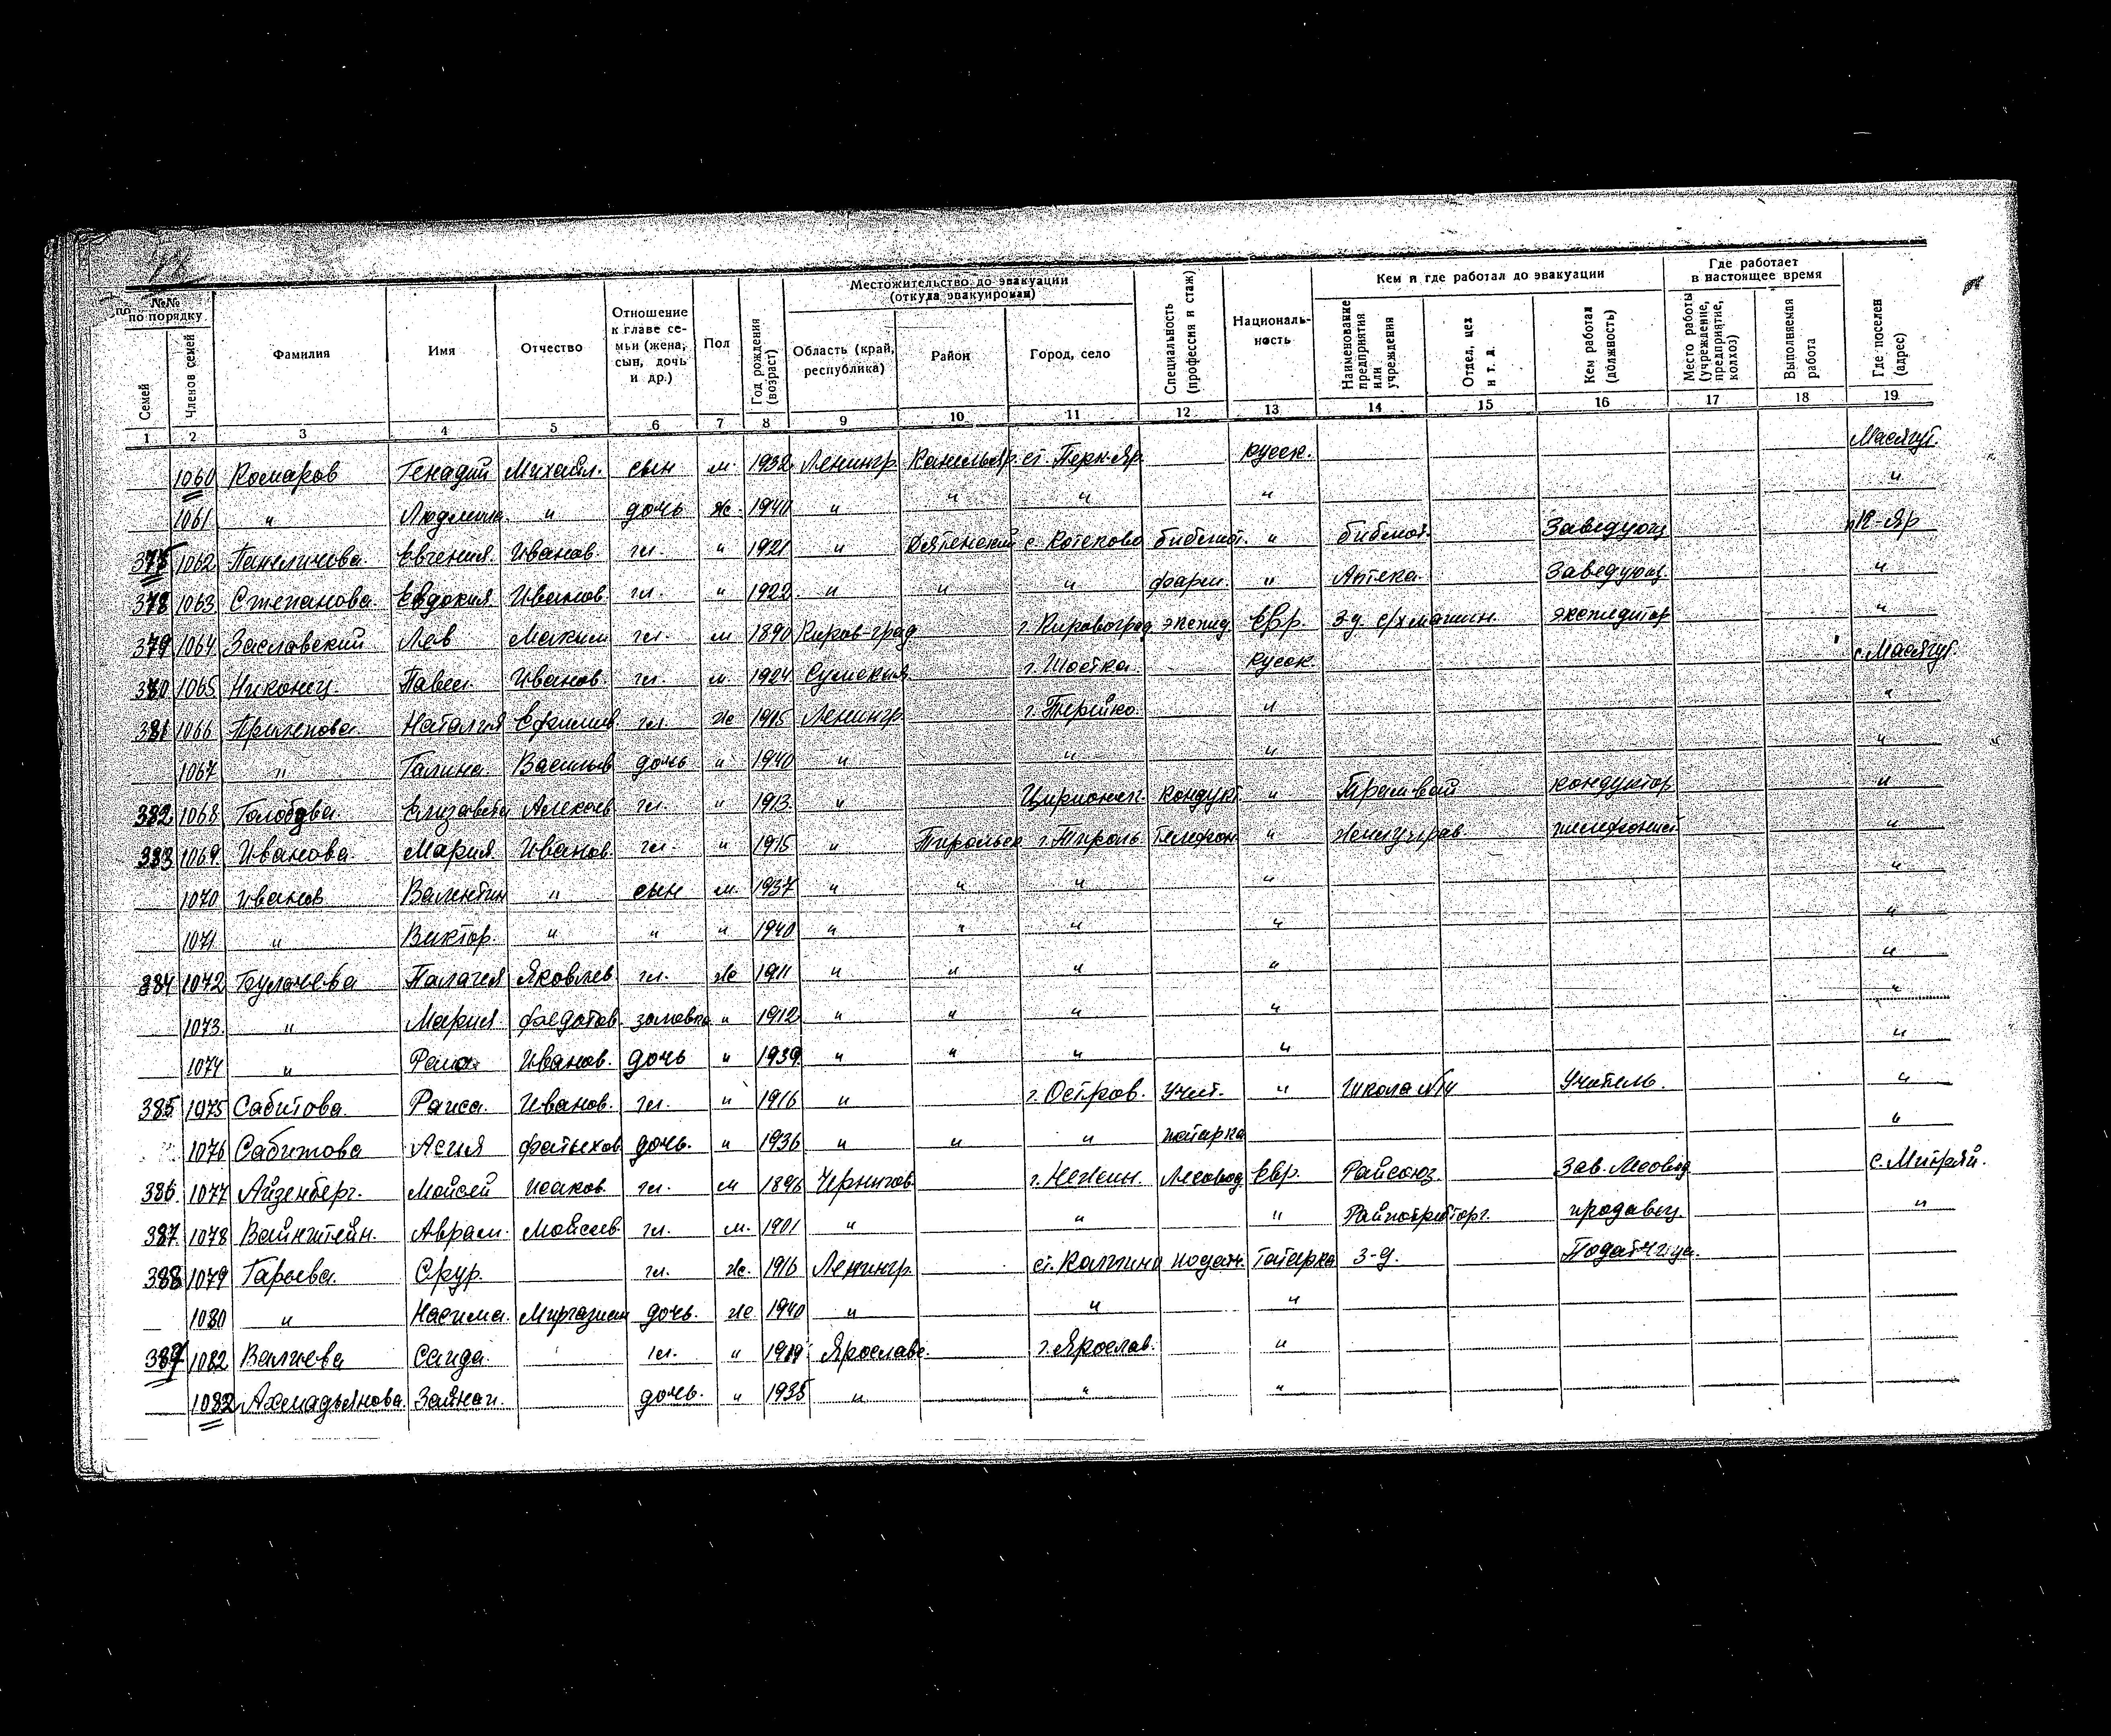 №№ по порядку
Местожительство до эвакуации (откуда эвакуирован)
Кем и где работал до эвакуации
Где работает в настоящее время
Семей Членов семей Фамилия Имя Отчество Отношение к главе семьи (жена, сын, дочь и др.) Пол Год рождения (возраст) Область (край, республика) Район Город, село Специальность (профессия и стаж) Национальность Наименование предприятия или учреждения Отдел, цех и т. д. Кем работал (должность) Место работы (учреждение, предприятие, колхоз) Выполняемая работа Где поселен (адрес)
1 2 3 4 5 6 7 8 9 10 11 12 13 14 15 16 17 18 19
1060 Комаров Генадий Михайл. сын м. 1932 Ленингр. ст. Перк-Яр. русск. Масягут.
1061 " Людмила " дочь ж. 1940 " " " " "
1062 Евгения Иванов. гл. " 1921 " с. Котеково библиот. " библиот. Заведующ. К-Яр
378 1063 Степанова Евдокия Иванов. гл. " 1922 " " " фарм. " Аптека Заведующ. "
379 1064 Заславский Лев Максим гл. м 1890 Киров-град г. Кировоград экспед. Евр. З-д с/х машин. экспедитор "
380 1065 Никонец Павел Иванов. гл. м. 1924 Сумская г. Шостка русск. с. Масягут.
381 1066 Наталия Ефимов. гл. ж 1915 Ленингр. г. Терийко. " "
1067 " Галина Васильев дочь " 1940 " " " "
382 1068 Голобова Елизавета Алексеев гл. " 1913 " кондукт. " Трамвай кондуктор "
383 1069 Иванова Мария Иванов. гл. " 1915 " г. Тироль телефон. " "
1070 Иванов Валентин " сын м. 1937 " " " " "
1071 " Виктор. " " " 1940 " " " " "
384 1072 Булачева Палагея Яковлев. гл. ж 1911 " " " " "
1073 " Мария Федотов. золовка " 1912 " " " " "
1074 " Раиса Иванов. дочь " 1939 " " " " "
385 1075 Сабитова Раиса Иванов. гл. " 1916 " г. Остров. Учит. " Школа №14 Учитель. "
1076 Сабитова Асия Фатыхов дочь. " 1936 " " " татарка "
386 1077 Айзенберг. Мойсей Исаков. гл. м 1896 Чернигов. г. Нежин. Лесовод Евр. Райсоюз. Зав. Лесовод с. Митряй.
387 1078 Вайнштейн. Аврам. Мойсеев. гл. м. 1901 " " " Райпотребторг. продавец. "
388 1079 Гарьева Сkур. гл. ж. 1916 Ленингр. ст. Колпино податч. Татарка З-д. Податчица.
1080 " Насима. Миргазиам дочь. ж 1940 " " "
389 1082 Валиева Саида гл. " 1919 Ярославс. г. Ярослав. "
1082 Ахмадьянова Зайнап. дочь. " 1935 " " "